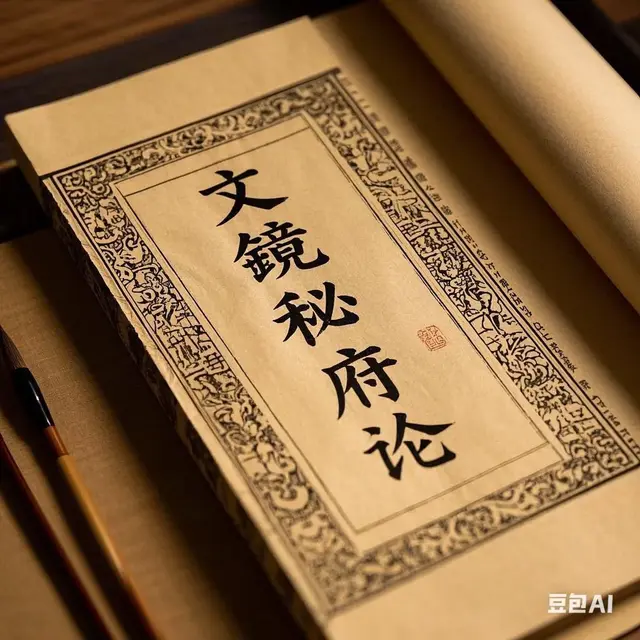 文鏡秘府论
豆包AI